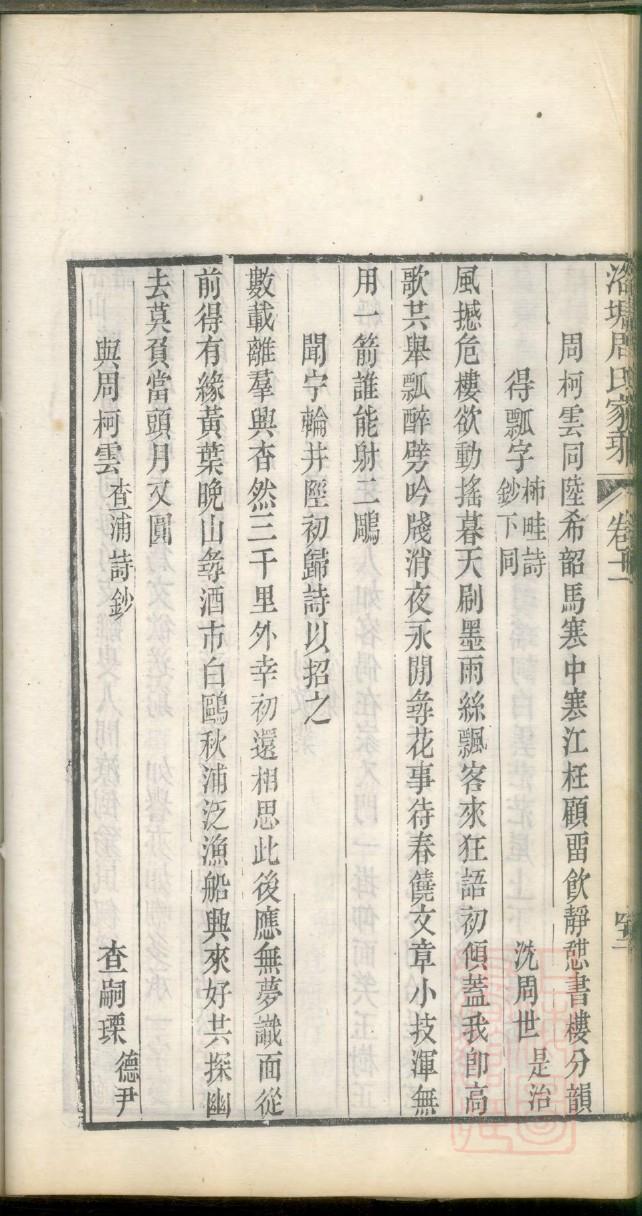 洛塘周氏家乘 卷十二
周柯雲同陸希韶馬寒中寒江枉顧畱飮靜憩書樓分韻
得瓢字 柿畦詩鈔下同 沈周世 是治
風撼危樓欲動搖暮天刷墨雨絲飄客來狂語初傾蓋我卽高
歌共舉瓢醉劈吟牋消夜永閒尋花事待春饒文章小技渾無
用一箭誰能射二鵰
聞宁輪井陘初歸詩以招之
數載離羣興杳然三千里外幸初還相思此後應無夢識面從
前得有緣黃葉晚山尋酒市白鷗秋浦泛漁船興來好共探幽
去莫負當頭月又圓
與周柯雲 查浦詩鈔 查嗣瑮 德尹